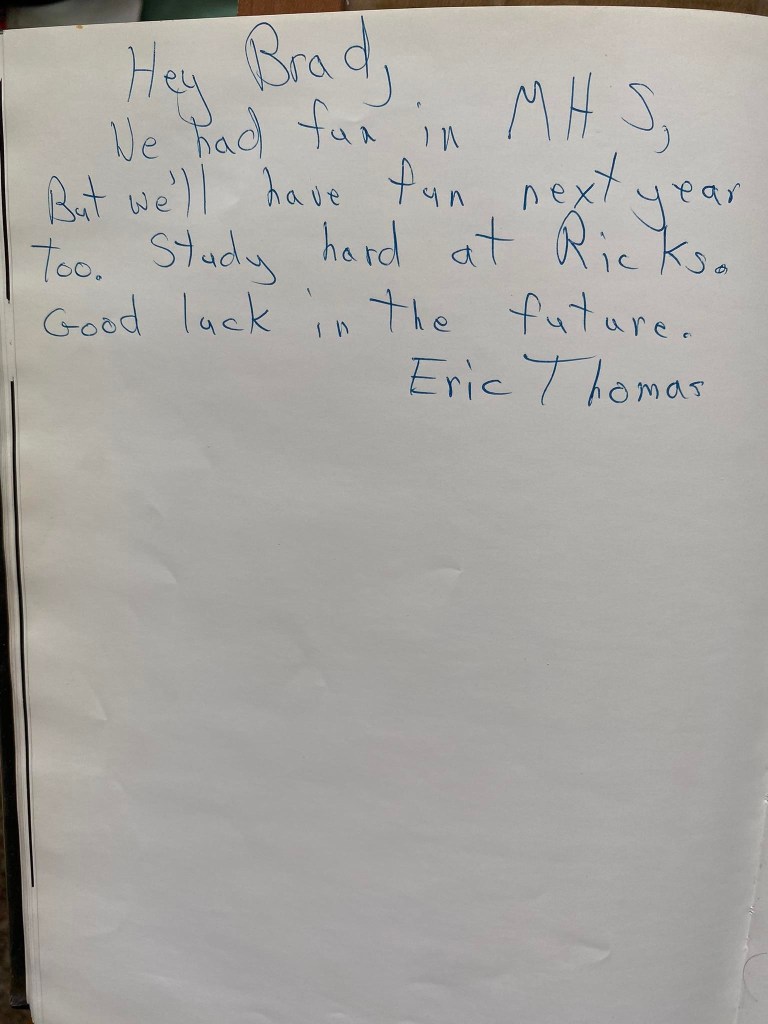 Hey Brad,
We had fun in MHS,
But we'll have fun next year
too. Study hard at Ricks.
Good luck in the future.
Eric Thomas